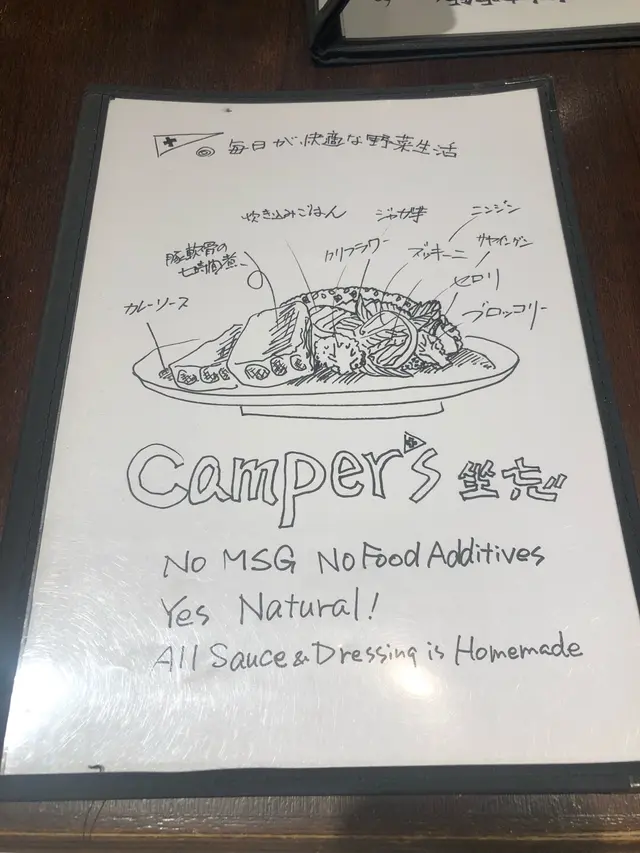 毎日が快適な野菜生活
炊き込みごはん
ジャガ芋
ニンジン
豚軟骨の
七時間煮
カリフラワー
ズッキーニ
サヤインゲン
カレーソース
セロリ
ブロッコリー
Camper's 坐忘
No MSG No Food Additives
Yes Natural!
All Sauce & Dressing is Homemade